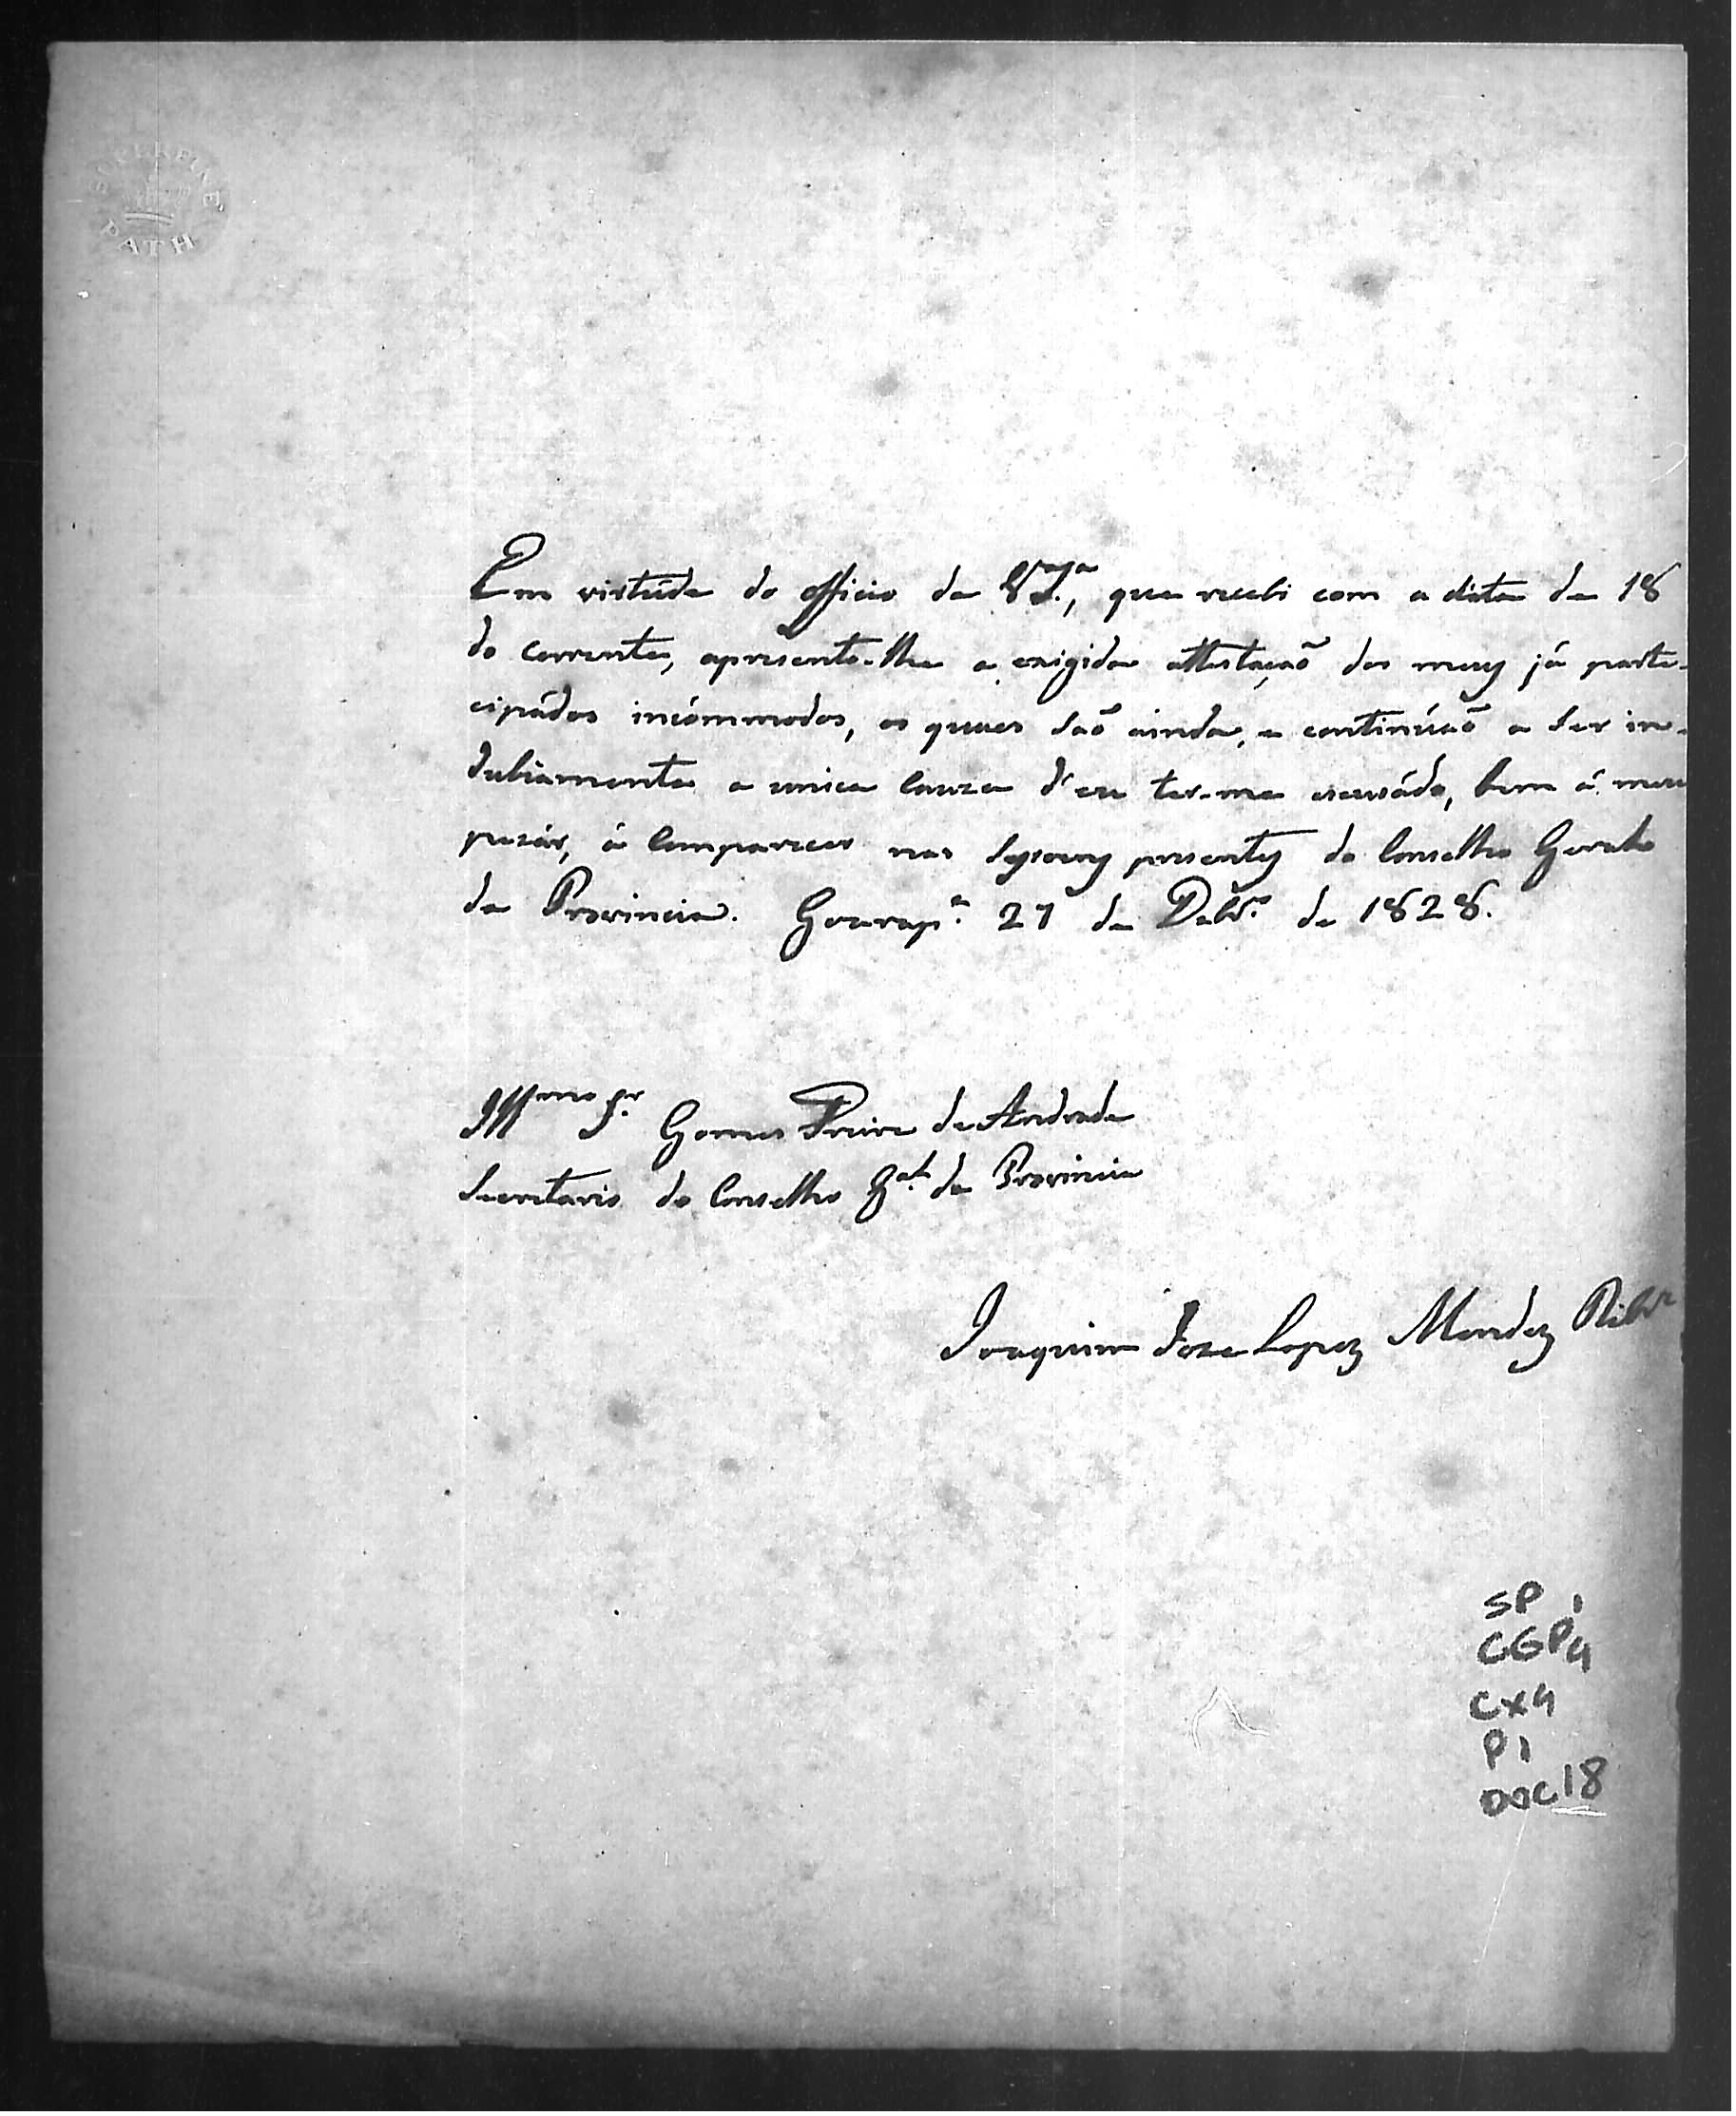 SUPERFINE
BATH
Em virtúde do officio de V.S.ª, que recebi com a data de 18
do corrente, apresento-lhe a exigida attestação dos meus já parte-
cipádos incómmodos, os quaes são ainda, e continúão a ser in-
dubiamente a unica cauza d'eu ter-me escusádo, bem á meu
pezár, á comparecer nas sessoens presentes do Conselho Geral
da Provincia. Guarap.ª 27 de Dezbr.º de 1828.
Illmo Sr. Gomes Freire de Andrade
Secretario do Conselho Gal. da Provincia
Joaquim Joze Lopez Mendez Ribr.º
SP 1
CGP4
CX4
P1
DOC18